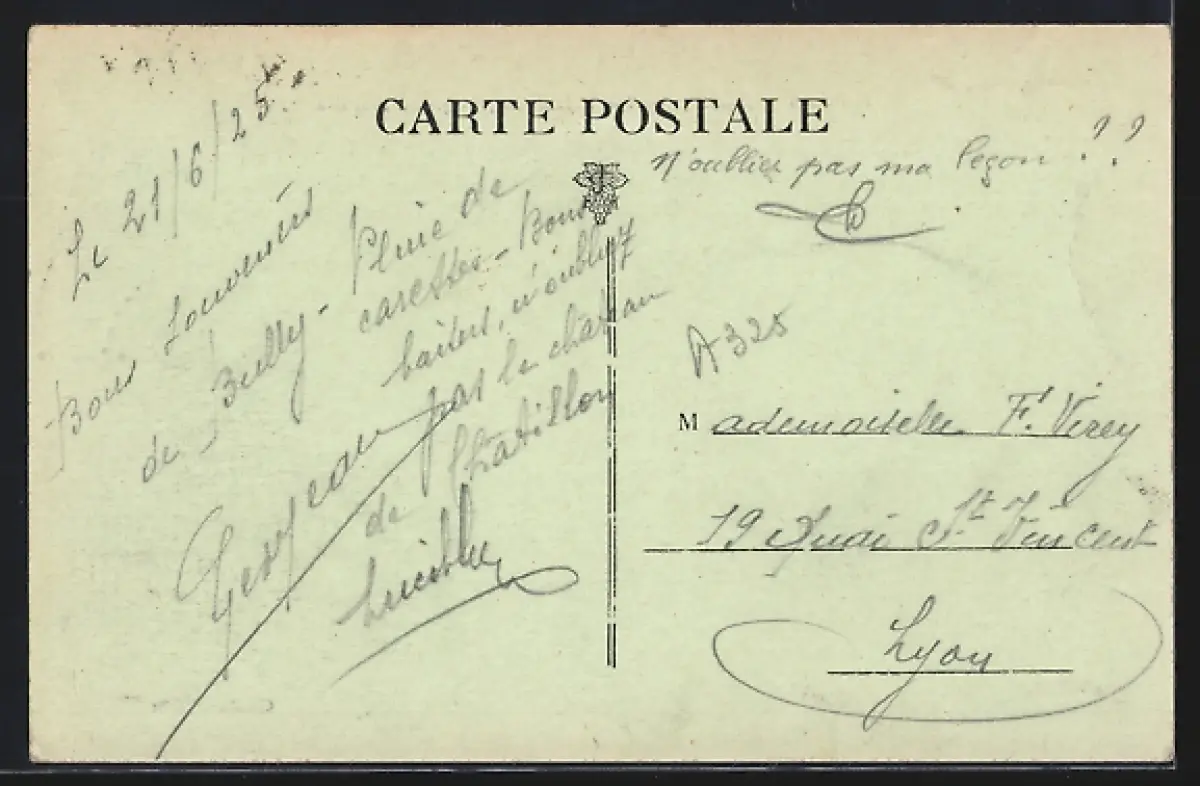 CARTE POSTALE
Le 21/6/25
Bons souvenirs
de Bully - Pluie de
caresses - Bons
baisers, n'oubliez
pas le chateau
de Chatillon
Lucielle
n'oublies pas ma leçon ??
A 325
Mademoiselle F. Virey
19 Quai St Vincent
Lyon